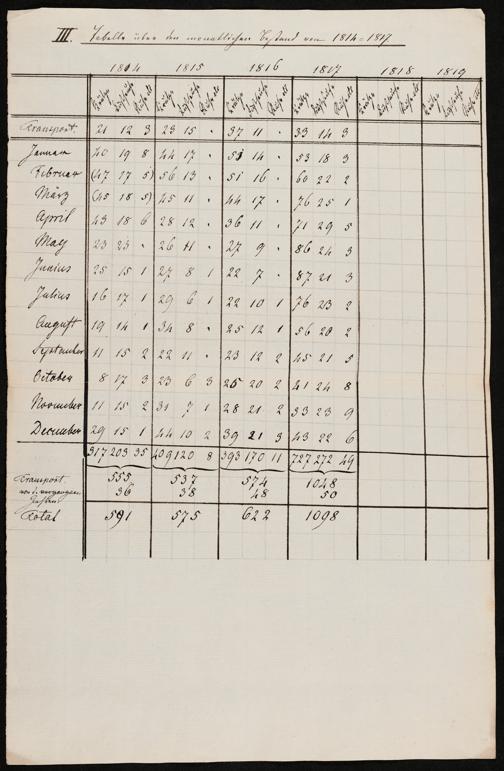 III. Tabelle über den monatlichen Bestand von 1814-1817
1814 1815 1816 1817 1818 1819
Transport. 21 12 3 23 15 " 37 11 " 33 14 3
Januar 40 19 8 44 17 " 51 14 " 53 18 3
Februar (47 17 5) 56 13 " 51 16 " 60 22 2
März (45 18 5) 45 11 " 44 17 " 76 25 1
April 43 18 6 28 12 " 36 11 " 71 29 5
May 23 23 " 26 11 " 27 9 " 86 24 3
Junius 25 15 1 27 8 1 22 7 " 87 21 3
Julius 16 17 1 29 6 1 22 10 1 76 23 2
August 19 14 1 34 8 " 25 12 1 56 20 2
September 11 15 2 22 11 " 23 12 2 45 21 5
October 8 17 3 23 6 3 25 20 2 41 24 8
November 11 15 2 31 7 1 28 21 2 33 23 9
December 29 15 1 44 10 2 39 21 3 43 22 6
317 203 35 409 120 8 393 170 11 727 272 49
Transport 555 537 574 1048
36 38 48 50
Total 591 575 622 1098